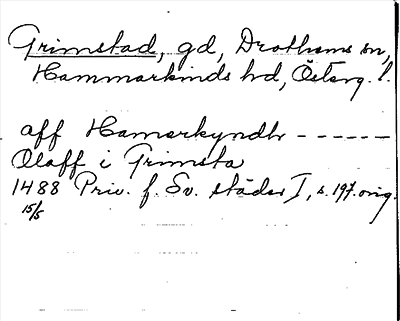 Grimstad, gd, Drothems sn,
Hammarkinds hd, Österg. l.
aff Hamarkyndh - - - - -
Olaff i Grimsta
1488 Priv. f. Sv. städer I, s. 197. orig.
15/5